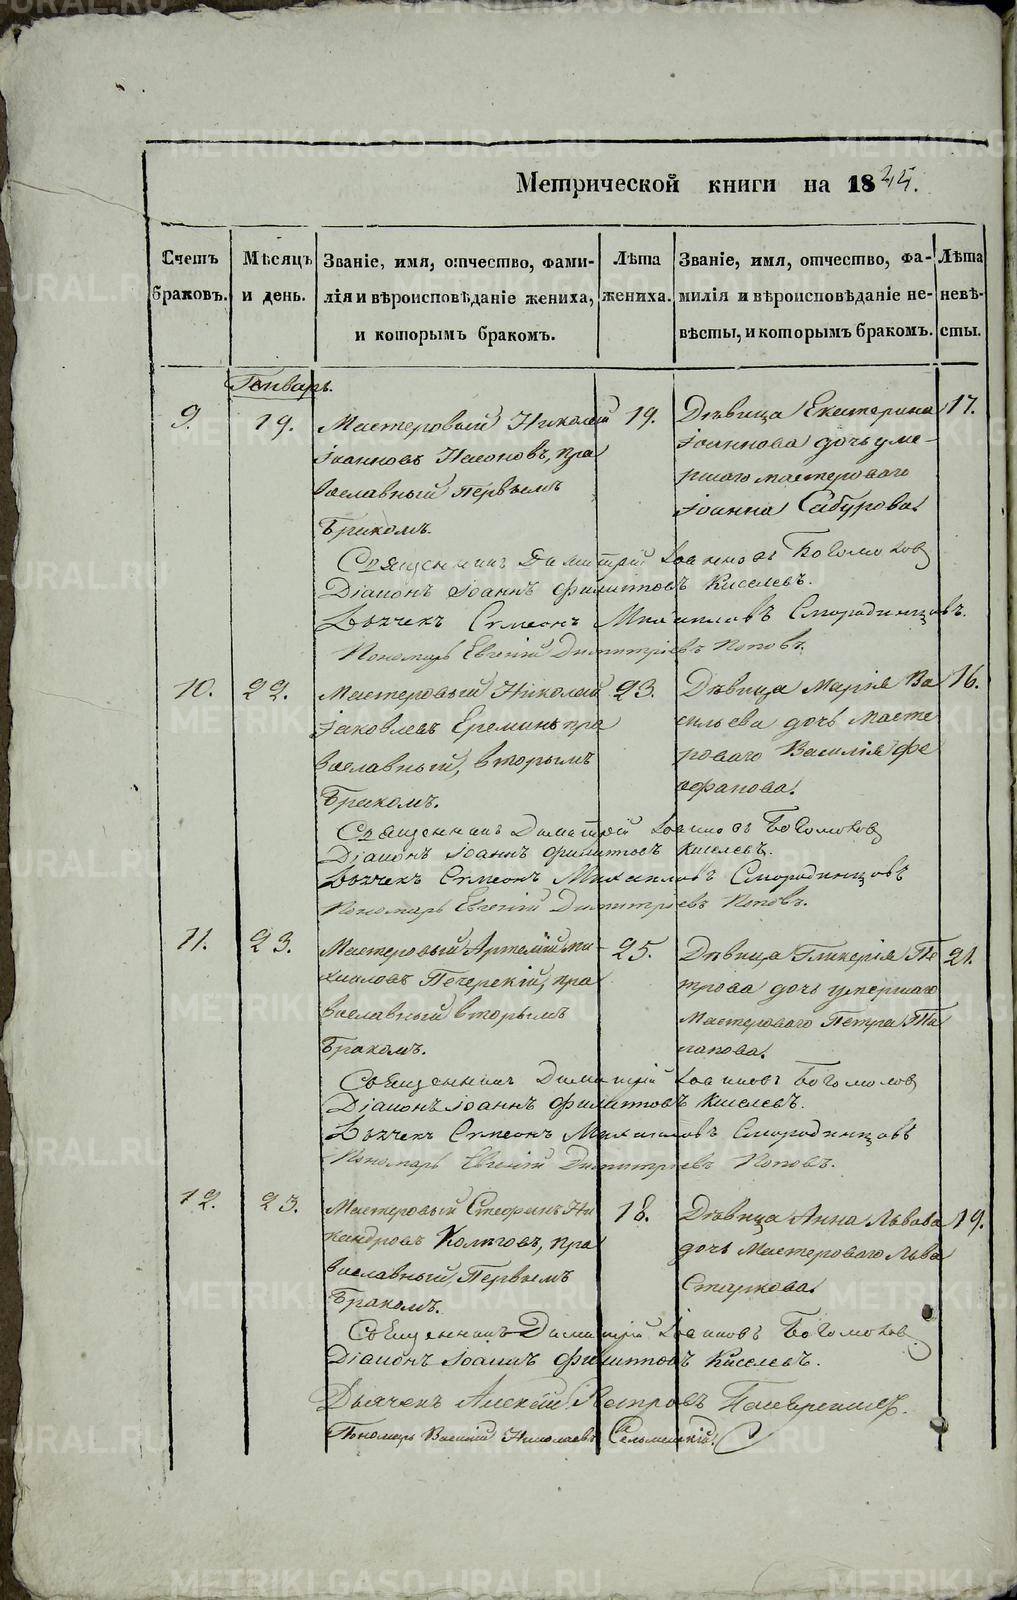 Метрической книги на 1845.
Счетъ браковъ.
Мѣсяцъ и день.
Званіе, имя, отчество, фами-
лія и вѣроисповѣданіе жениха,
и которымъ бракомъ.
Лѣта
жениха.
Званіе, имя, отчество, фа-
милія и вѣроисповѣданіе не-
вѣсты, и которымъ бракомъ.
Лѣта
невѣ-
сты.
Генварь.
9. 19.
Мастеровый Николай
Іоанновъ Насоновъ, пра
вославный первымъ
бракомъ.
19.
Дѣвица Екатерина
Іоаннова дочь уме-
ршаго мастероваго
Іоанна Сабурова.
17.
Священникъ Димитрій Іоанновъ Богомоловъ
Діаконъ Іоаннъ Филипповъ Киселевъ.
Дьячекъ Симеонъ Михаиловъ Смородинцовъ.
Пономарь Евгеній Димитріевъ Поповъ.
10. 22.
Мастеровый Николай
Іаковлевъ Ереминъ пра
вославный, вторымъ
бракомъ.
23.
Дѣвица Марія Ва
сильева дочь масте
роваго Василія Фе
офанова.
16.
Священникъ Димитрій Іоанновъ Богомоловъ
Діаконъ Іоаннъ Филипповъ Киселевъ.
Дьячекъ Симеонъ Михаиловъ Смородинцовъ
Пономарь Евгеній Димитріевъ Поповъ.
11. 23.
Мастеровый Артемій Ми
хаиловъ Печерскій, пра
вославный вторымъ
бракомъ.
25.
Дѣвица Гликерія Пе
трова дочь умершаго
Мастероваго Петра
21.
Священникъ Димитрій Іоанновъ Богомоловъ
Діаконъ Іоаннъ Филипповъ Киселевъ.
Дьячекъ Симеонъ Михаиловъ Смородинцовъ
Пономарь Евгеній Димитріевъ Поповъ.
12. 23.
Мастеровый Стефанъ Ни
кандровъ пра
вославный, первымъ
бракомъ.
18.
Дѣвица Анна Львова
дочь Мастероваго Льва
Старкова.
19.
Священникъ Димитрій Іоанновъ Богомоловъ
Діаконъ Іоаннъ Филипповъ Киселевъ.
Дьячекъ Алексій Петровъ
Пономарь Василій Николаевъ
METRIKI.GASO-URAL.RU